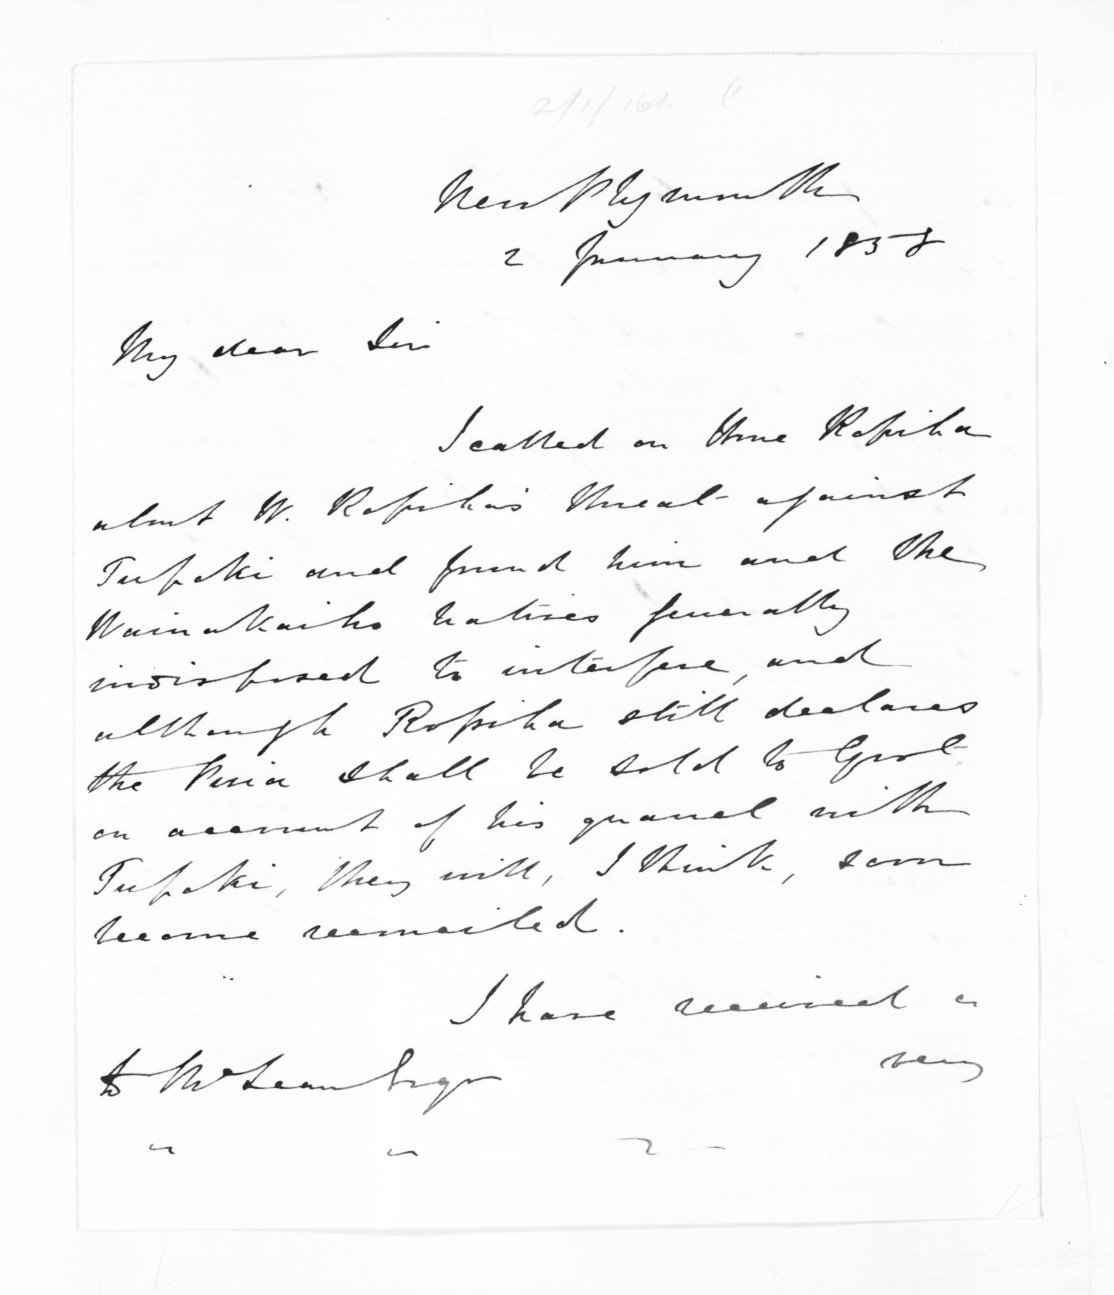 2/1/161.
New Plymouth
2 January 1858
My dear Sir
I called on Hone Ropiha
about W. Ropiha's threat against
Tupoki and found him and the
Waiwakaiho natives generally
indisposed to interfere, and
although Ropiha still declares
the Puia shall be sold to Govt.
on account of his quarrel with
Tupoki, they will, I think, soon
become reconciled.
I have received a
very
McLean Esqr